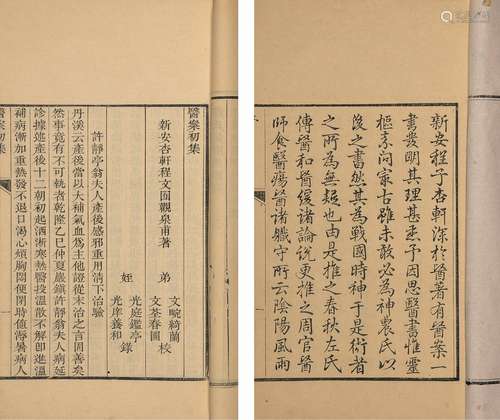 新安程子杏軒深於醫著有醫案一
書發明其理甚悉予因思醫書惟靈
樞素問冣古雖未敢必為神農氏以
後之書然其為戰國時神于是術者
之所為無疑也由是推之春秋左氏
傳醫和醫緩諸論說更推之周官醫
師食醫瘍醫諸職守所云陰陽風雨
醫案初集
新安杏軒程文囿觀泉甫著
弟
文 綺蘭
文荃春圃
校
姪
光庭鑑亭
光庠養和
錄
許靜亭翁夫人產後感邪重用清下治驗
丹溪云產後當以大補氣血為主他證從末治之言固善矣
然事竟有不可執者乾隆乙巳仲夏巖鎮許靜翁夫人病延
診據述產後十二朝初起洒淅寒熱醫投溫散不解即進溫
補病漸加重熱發不退口渴心煩胸悶便閉時值溽暑病人
醫案初集